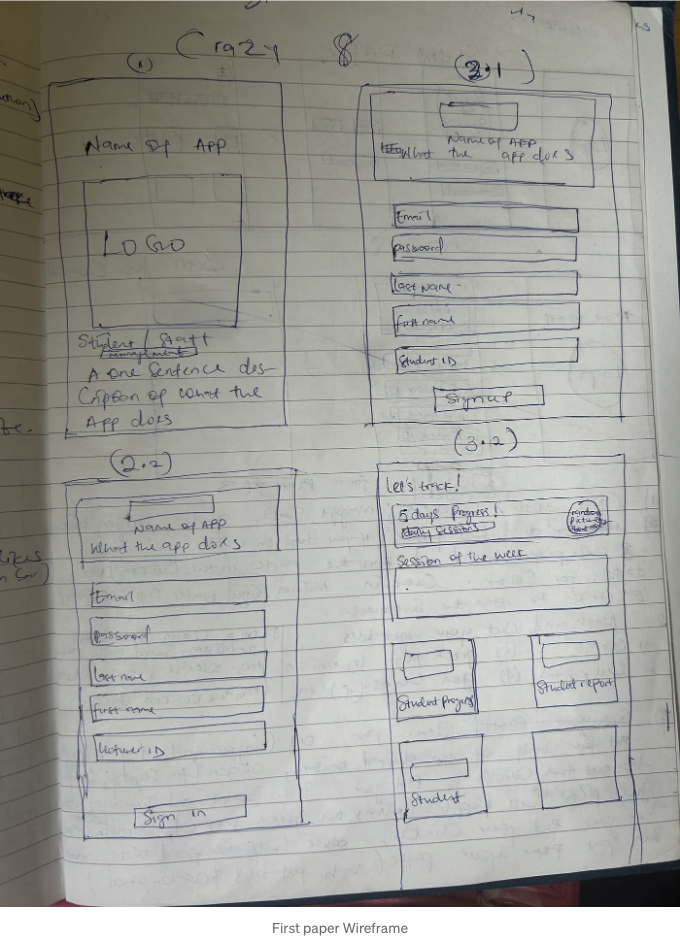 Crazy 8
(1)
Name of APP
LOGO
Student / Staff
management
A one Sentence des-
Cription of what the
App does
(2.1)
Name of APP
What the app does
Email
password
last name
first name
Student ID
Sign up
(2.2)
Name of APP
What the app does
Email
password
last name
first name
lecturer ID
Sign in
(3.2)
Let's track!
5 days Progress!
daily sessions
random
picture
Session of the week
Student progress
Student report
Student
First paper Wireframe